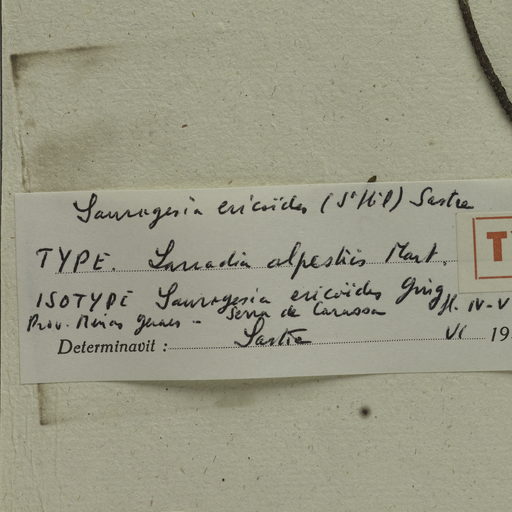 Sauvagesia ericoides (St Hil) Sastre
TYPE. Lavradia alpestris Mart.
T
ISOTYPE Sauvagesia ericoides Ging fl. IV-V
Prov. Minas geraes - Serra de Carassa
Determinavit : Sastre VI 19